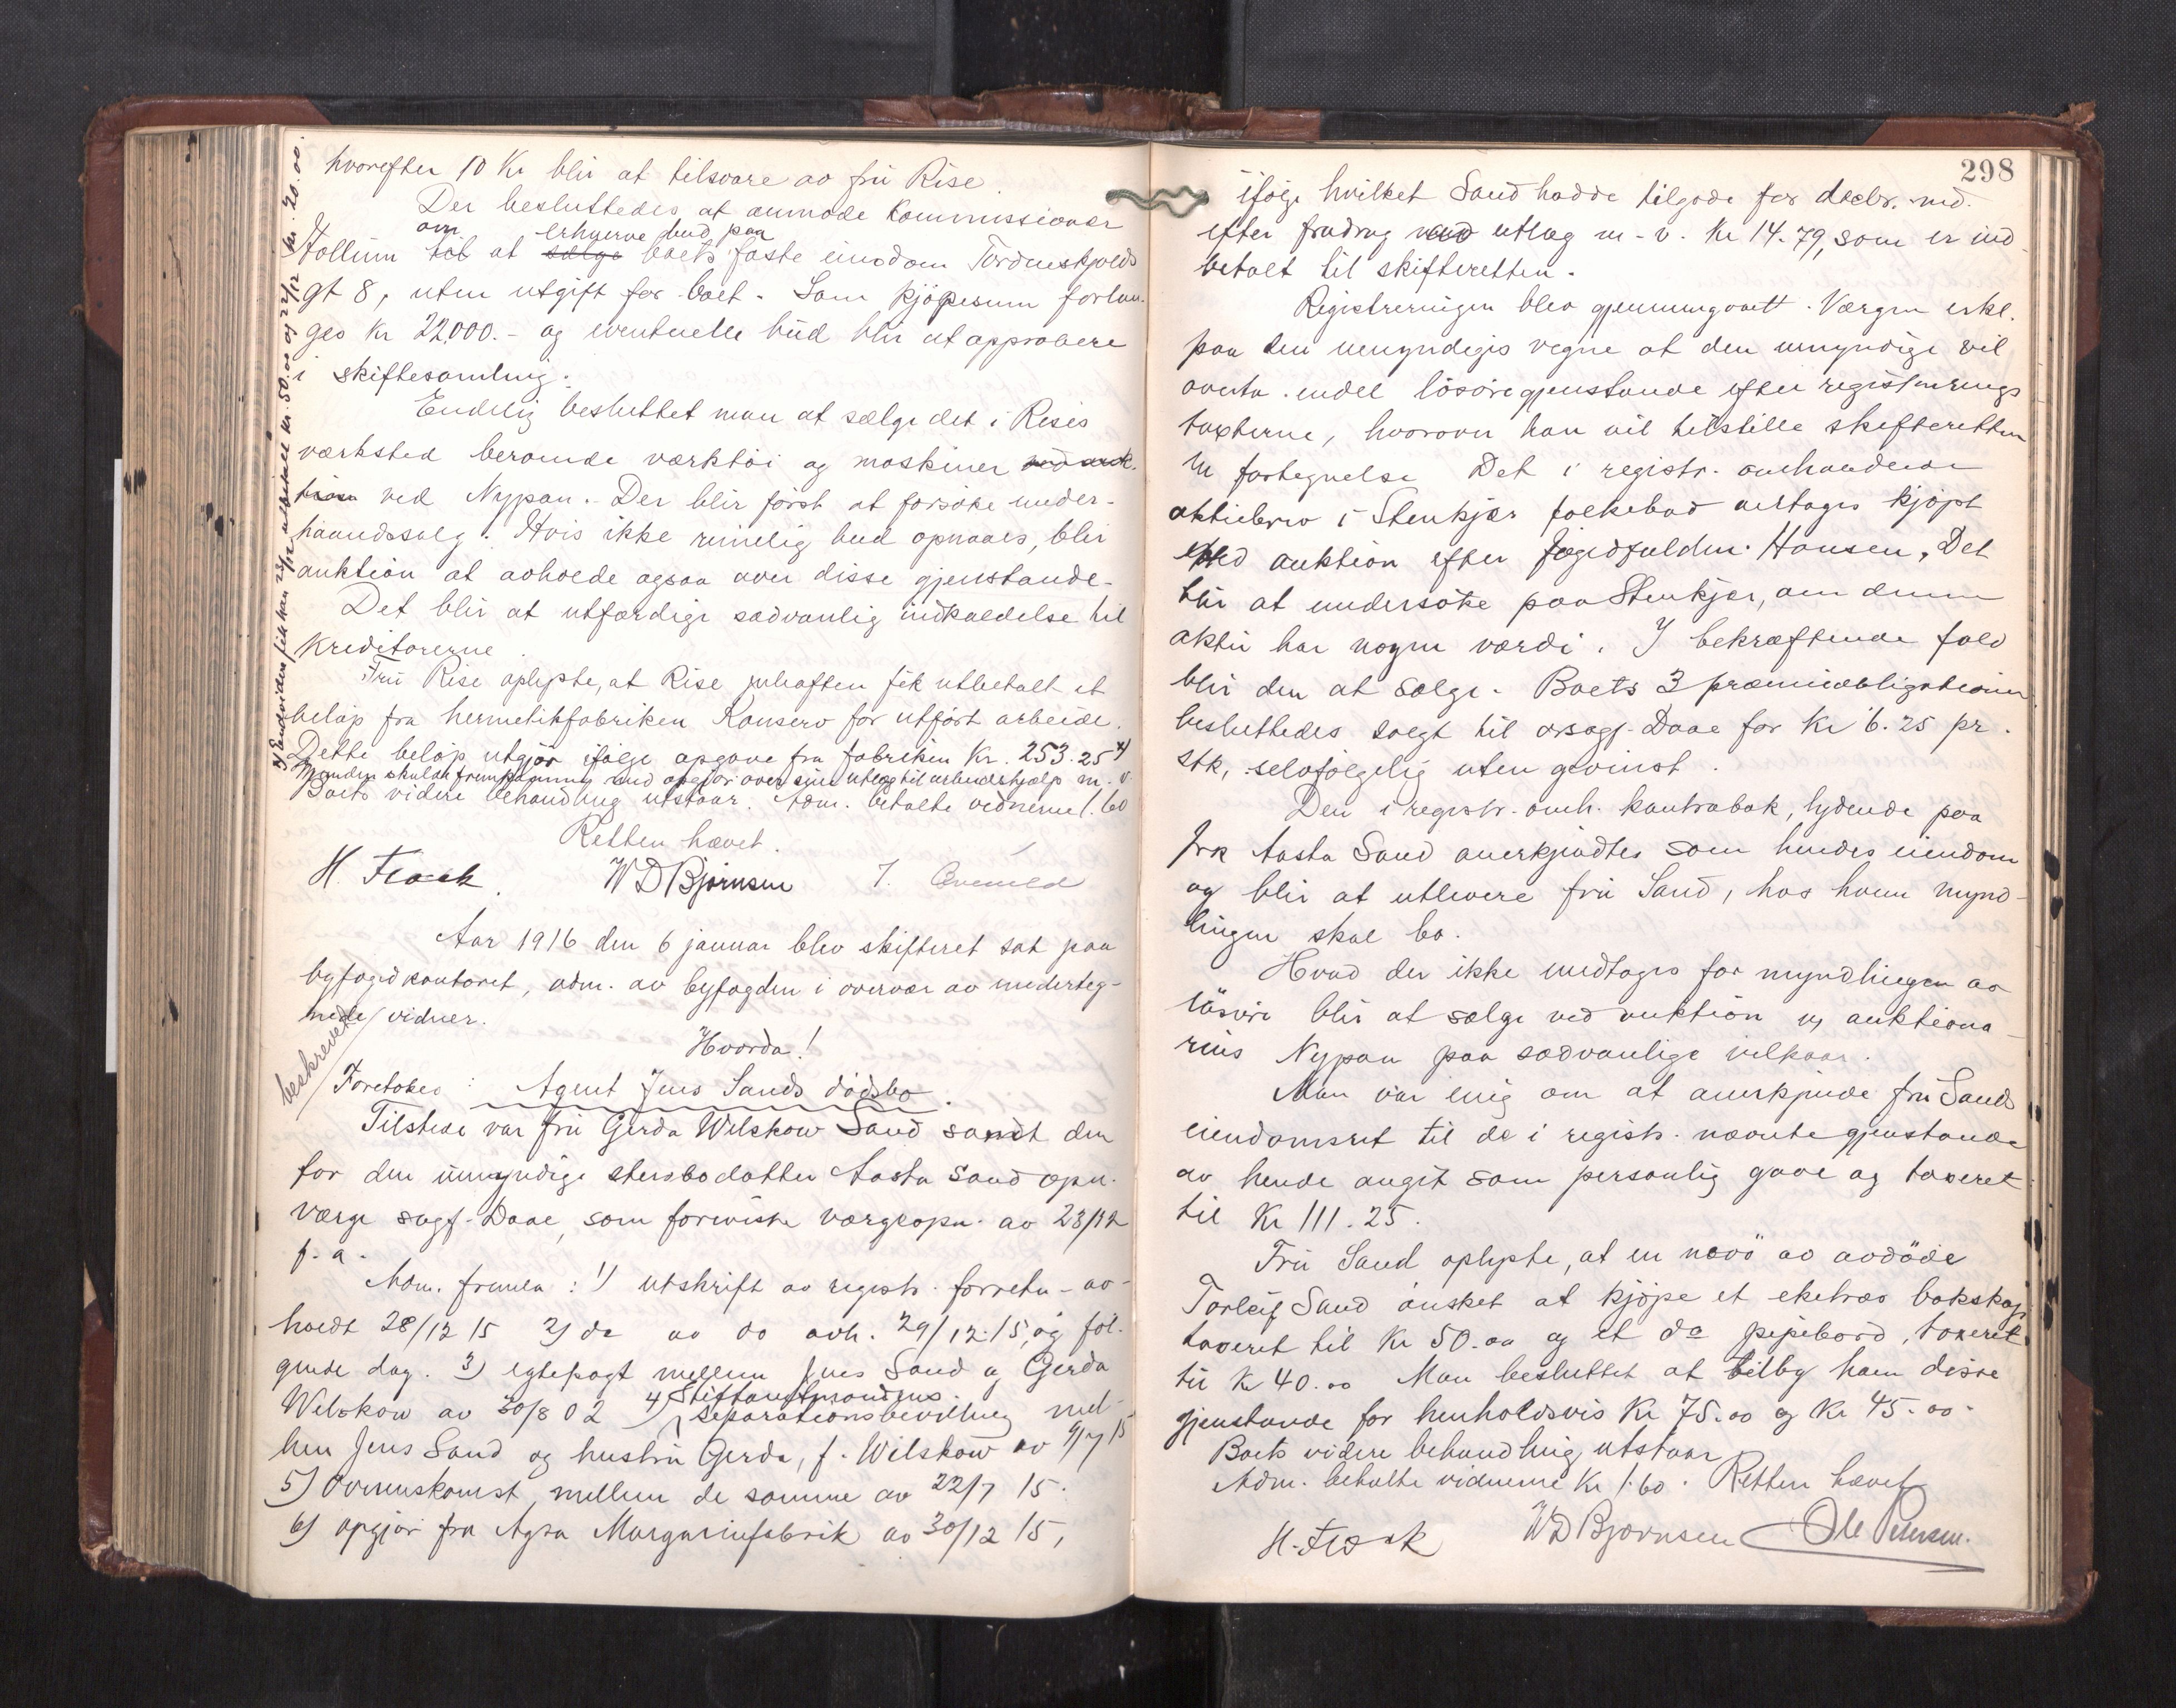 hvorefter 10 Kr blir at tilsvare av fru Rise.
Der besluttedes at anmode Kommissionær
om erhverve bud paa
Hollum til at sælge boets faste eiendom Tordenskjolds
gt 8, uten utgift for boet. Som kjøpesum forlan-
ges kr 22,000.- og eventuelle bud blir at approbere
i skiftesamling.
Endelig besluttet man at sælge det i Rises
værksted beroende værktøi og maskiner ved auk-
tion ved Nypan. Der blir först at forsöke under-
haandssalg. Hvis ikke rimelig bud opnaaes, blir
auktion at avholde ogsaa over disse gjenstande.
Det blir at utfærdige sædvanlig indkaldelse til
kreditorerne.
Fru Rise oplyste, at Rise juleaften fik utbetalt et
belöp fra hermetikfabriken Konserv for utfört arbeide.
Dette belöp utgjör ifölge opgave fra fabriken Kr. 253.25 x)
Manden skulde fremkomme med opgjör over sine utlæg til arbeidshjælp m.v.
Boets videre behandling utstaar. Adm. betalte vidnerne 1.60
Retten hævet.
H. Floak WD Bjørnsen J.
x) Endvidere fik han 23/12 utbetalt kr. 50.00 og 22/12 kr. 20.00.
Aar 1916 den 6 januar blev skifteret sat paa
byfogdkontoret, adm. av byfogden i overvær av underteg-
nede vidner.
Hvorda!
beskrevet
Foretokes: Agent Jens Sands dödsbo.
Tilstede var fru Gerda Wilskow Sand samt den
for den umyndige stervbodatter Aasta Sand opn.
værge sagf. Daae, som foreviste værgeopn. av 23/12
f. a.
Adm. fremla: 1) utskrift av registr. forretn. av-
holdt 28/12 15 2) do av do avh. 29/12 15 og föl-
gende dag. 3) egtepagt mellem Jens Sand og Gerda
Wilskow av 30/8 02 4) Stiftamtmandens separationsbevilling mel-
lem Jens Sand og hustru Gerda, f. Wilskow av 9/7 15
5) Overenskomst mellem de samme av 22/7 15.
6) opgjör fra Agra Margarinfabrik av 30/12 15,
298
ifölge hvilket Sand hadde tilgode for decbr. md.
efter fradrag utlæg m.v. Kr 14.79, som er ind-
betalt til skifteretten.
Registreringen blev gjennemgaatt. Værgen erkl.
paa den umyndiges vegne at den umyndige vil
overta endel lösöregjenstande efter registrerings
taxterne, hvorover han vil tilstille skifteretten
en fortegnelse Det i registr. omhandlede
aktiebrev i Stenkjær folkebad antages kjøpt
ved auktion efter fogedfuldm. Hansen. Det
blir at undersöke paa Stenkjær, om denne
aktie har nogen værdi. I bekræftende fald
blir den at sælge. Boets 3 præmieobligationer
besluttedes solgt til orsagf. Daae for Kr 6.25 pr.
stk, selvfölgelig uten gevinst.
Den i registr. omh. kontrabok, lydende paa
frk Aasta Sand anerkjendtes som hendes eiendom
og blir at utlevere fru Sand, hos hvem mynd-
lingen skal bo.
Hvad der ikke medtages for myndlingen av
lösöre blir at sælge ved auktion v/ auktiona-
rius Nypan paa sædvanlige vilkaar.
Man var enig om at anerkjende fru Sands
eiendomsret til de i registr. nævnte gjenstande
av hende angit som personlig gave og taxeret
til Kr 111.25.
Fru Sand oplyste, at en nevö av avdöde
Torleif Sand önsket at kjöpe et eketræs bokskap
taxeret til Kr 50.00 og et do pipebord, taxeret
til Kr 40.00 Man besluttet at tilby ham disse
gjenstande for henholdsvis Kr 75.00 og Kr 45.00.
Boets videre behandling utstaar
Adm. betalte vidnerne Kr 1.60. Retten hævet
H. Floak WD Bjørnsen Ole Petersen.